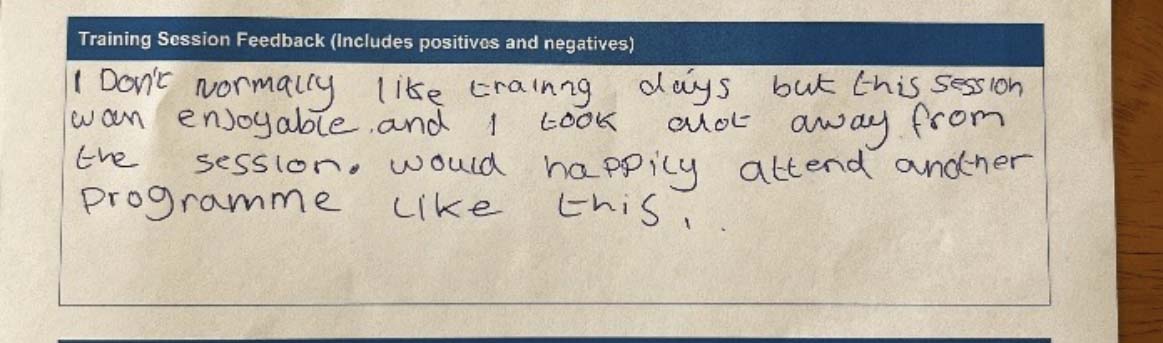 Training Session Feedback (Includes positives and negatives)
I Don't normally like trainng days but this session
was enjoyable. and I took alot away from
the session. would happily attend another
programme like this.